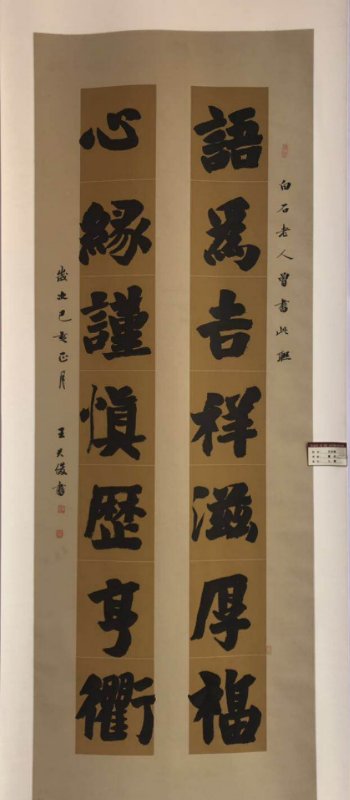 白石老人曾書此聯
語爲吉祥滋厚福
心緣謹慎歷亨衢
歲次己亥正月
王天俊書